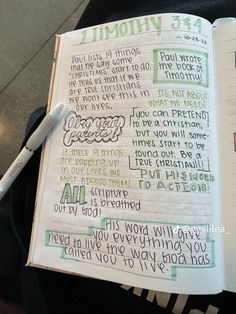 2 TIMOTHY 3&4
10-28-22
Paul lists 19 things
that he saw some
"CHRISTIANS" start to do.
He tells us that if we
ARE TRUE CHRISTIANS
we won't see this in
our lives.
Paul wrote
the book of
Timothy!
ITS NOT ABOUT
WHAT WE NEED!
Obey your
parents!
you can PRETEND
to be a christian,
but you will some-
times start to be
found out. Be a
TRUE CHRISTIAN!!
If these 19 things
are popping up
in our lives we
MUST ADDRESS THEM!
PUT HIS WORD
TO ACTION!
All scripture
is breathed
out by God!
His word will give
you everything you
need to live the way God has
called you to live.